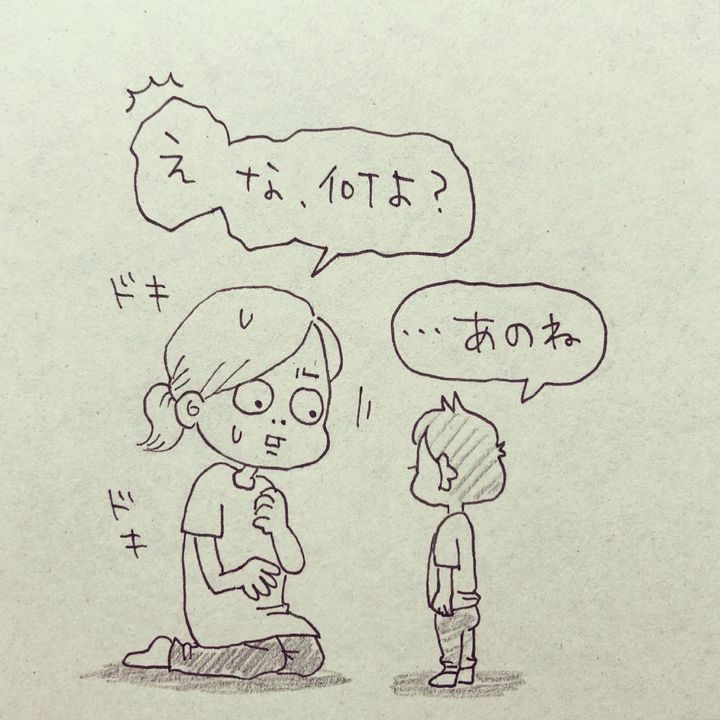 え
な、何よ?
ドキ
…あのね
ドキ